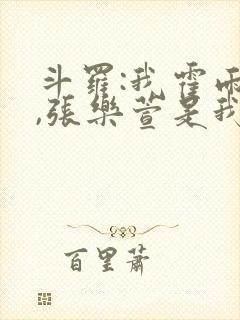 斗羅:我霍雨
,張樂萱是我
百里蕭